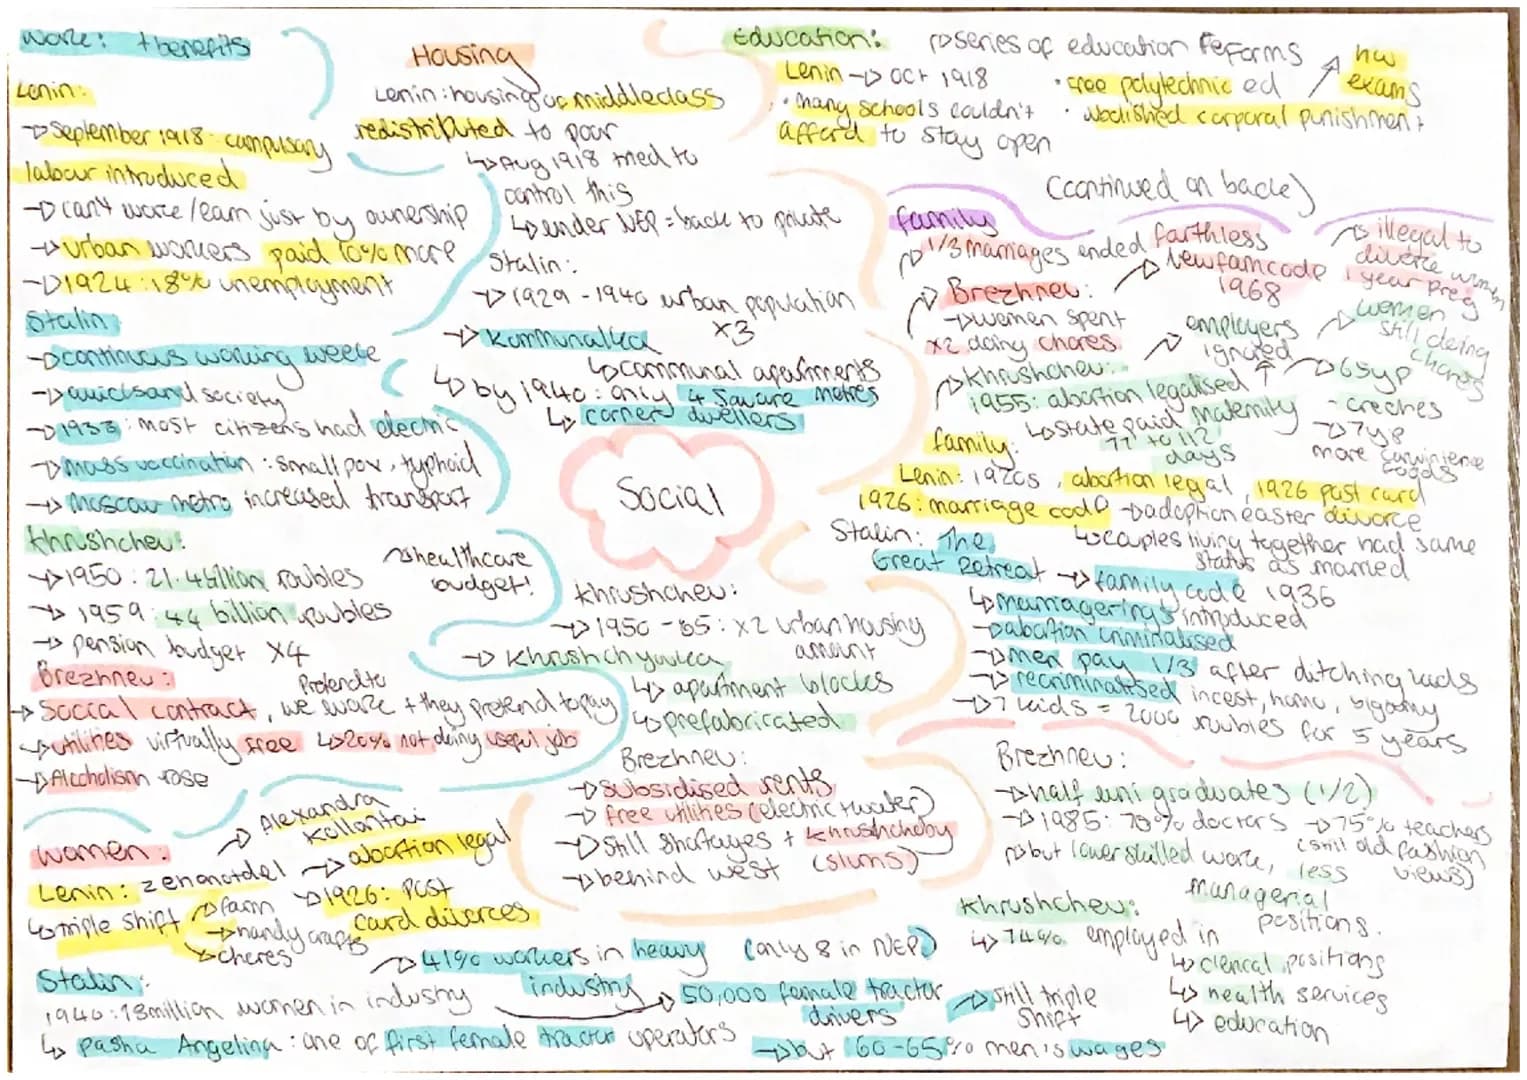 work: + benefits
Lenin:
→ September 1918: compulsory
labour introduced
→ can't work/earn just by ownership
→ urban workers paid 10% more
→ 1924: 18% unemployment
Stalin
→ continuous working week
→ quicksand society
→ 1933: most citizens had electric
→ mass vaccination: small pox, typhoid
→ Moscow metro increased transport
Khrushchev:
→ 1950: 21.4 billion roubles
→ 1959: 44 billion roubles
→ healthcare
budget!
→ pension budget x4
Brezhnev:
→ Social contract, we work + they pretend to pay
Pretend to
→ utilities virtually free ↳ 20% not doing useful job
→ Alcoholism rose
Housing
Lenin: housing of middle class
redistributed to poor
↳ Aug 1918 tried to
control this
↳ under NEP = back to private
Stalin:
→ 1929 - 1940 urban population
x3
→ Kommunalka
↳ communal apartments
↳ by 1940: only 4 square metres
↳ corner dwellers
Social
Khrushchev:
→ 1950 - 65: x2 urban housing
amount
→ Khrushchyovka
↳ apartment blocks
↳ prefabricated
Brezhnev:
→ subsidised rents
→ free utilities (electric + water)
→ Still shortages + Khrushchoby
(slums)
→ behind west
Education:
→ series of education reforms
Lenin → Oct 1918
· free polytechnic ed
↗ hw
exams
· many schools couldn't
afford to stay open
· abolished corporal punishment
(continued on back)
family
→ 1/3 marriages ended farthless
→ Brezhnev:
→ New fam code
1968
→ illegal to
divorce women
1 year preg
→ women spent
x2 doing chores
→ employers
ignored
→ women
still doing
chores
→ Khrushchev:
1955: abortion legalised
↳ state paid maternity
77 to 112
days
→ 65yp
- creches
→ 7yp
more convinience
foods
family:
Lenin: 1920s, abortion legal, 1926 post card
1926: marriage code → adoption easter divorce
↳ couples living together had same
status as married
Stalin: The
Great Retreat → family code 1936
↳ marriage rings introduced
→ abortion criminalised
→ men pay 1/3 after ditching kids
→ recriminalised incest, homo, bigamy
→ 7 kids = 2000 roubles for 5 years
women:
Lenin: zenotdel
→ Alexandra
Kollontai
→ abortion legal
→ 1926: Post
card divorces
↳ triple shift
→ farm
→ handy crafts
→ chores
Stalin:
1940: 13million women in industry
→ 41% workers in heavy
industry
(only 8 in NEP)
→ 50,000 female tractor
drivers
→ still triple
shift
↳ Pasha Angelina: one of first female tractor operators
→ but 60-65% men's wages
Brezhnev:
→ half uni graduates (1/2)
→ 1985: 70% doctors → 75% teachers
(still old fashion
views)
→ but lower skilled work, less
managerial
positions.
Khrushchev:
↳ 74% employed in
↳ clerical positions
↳ health services
↳ education